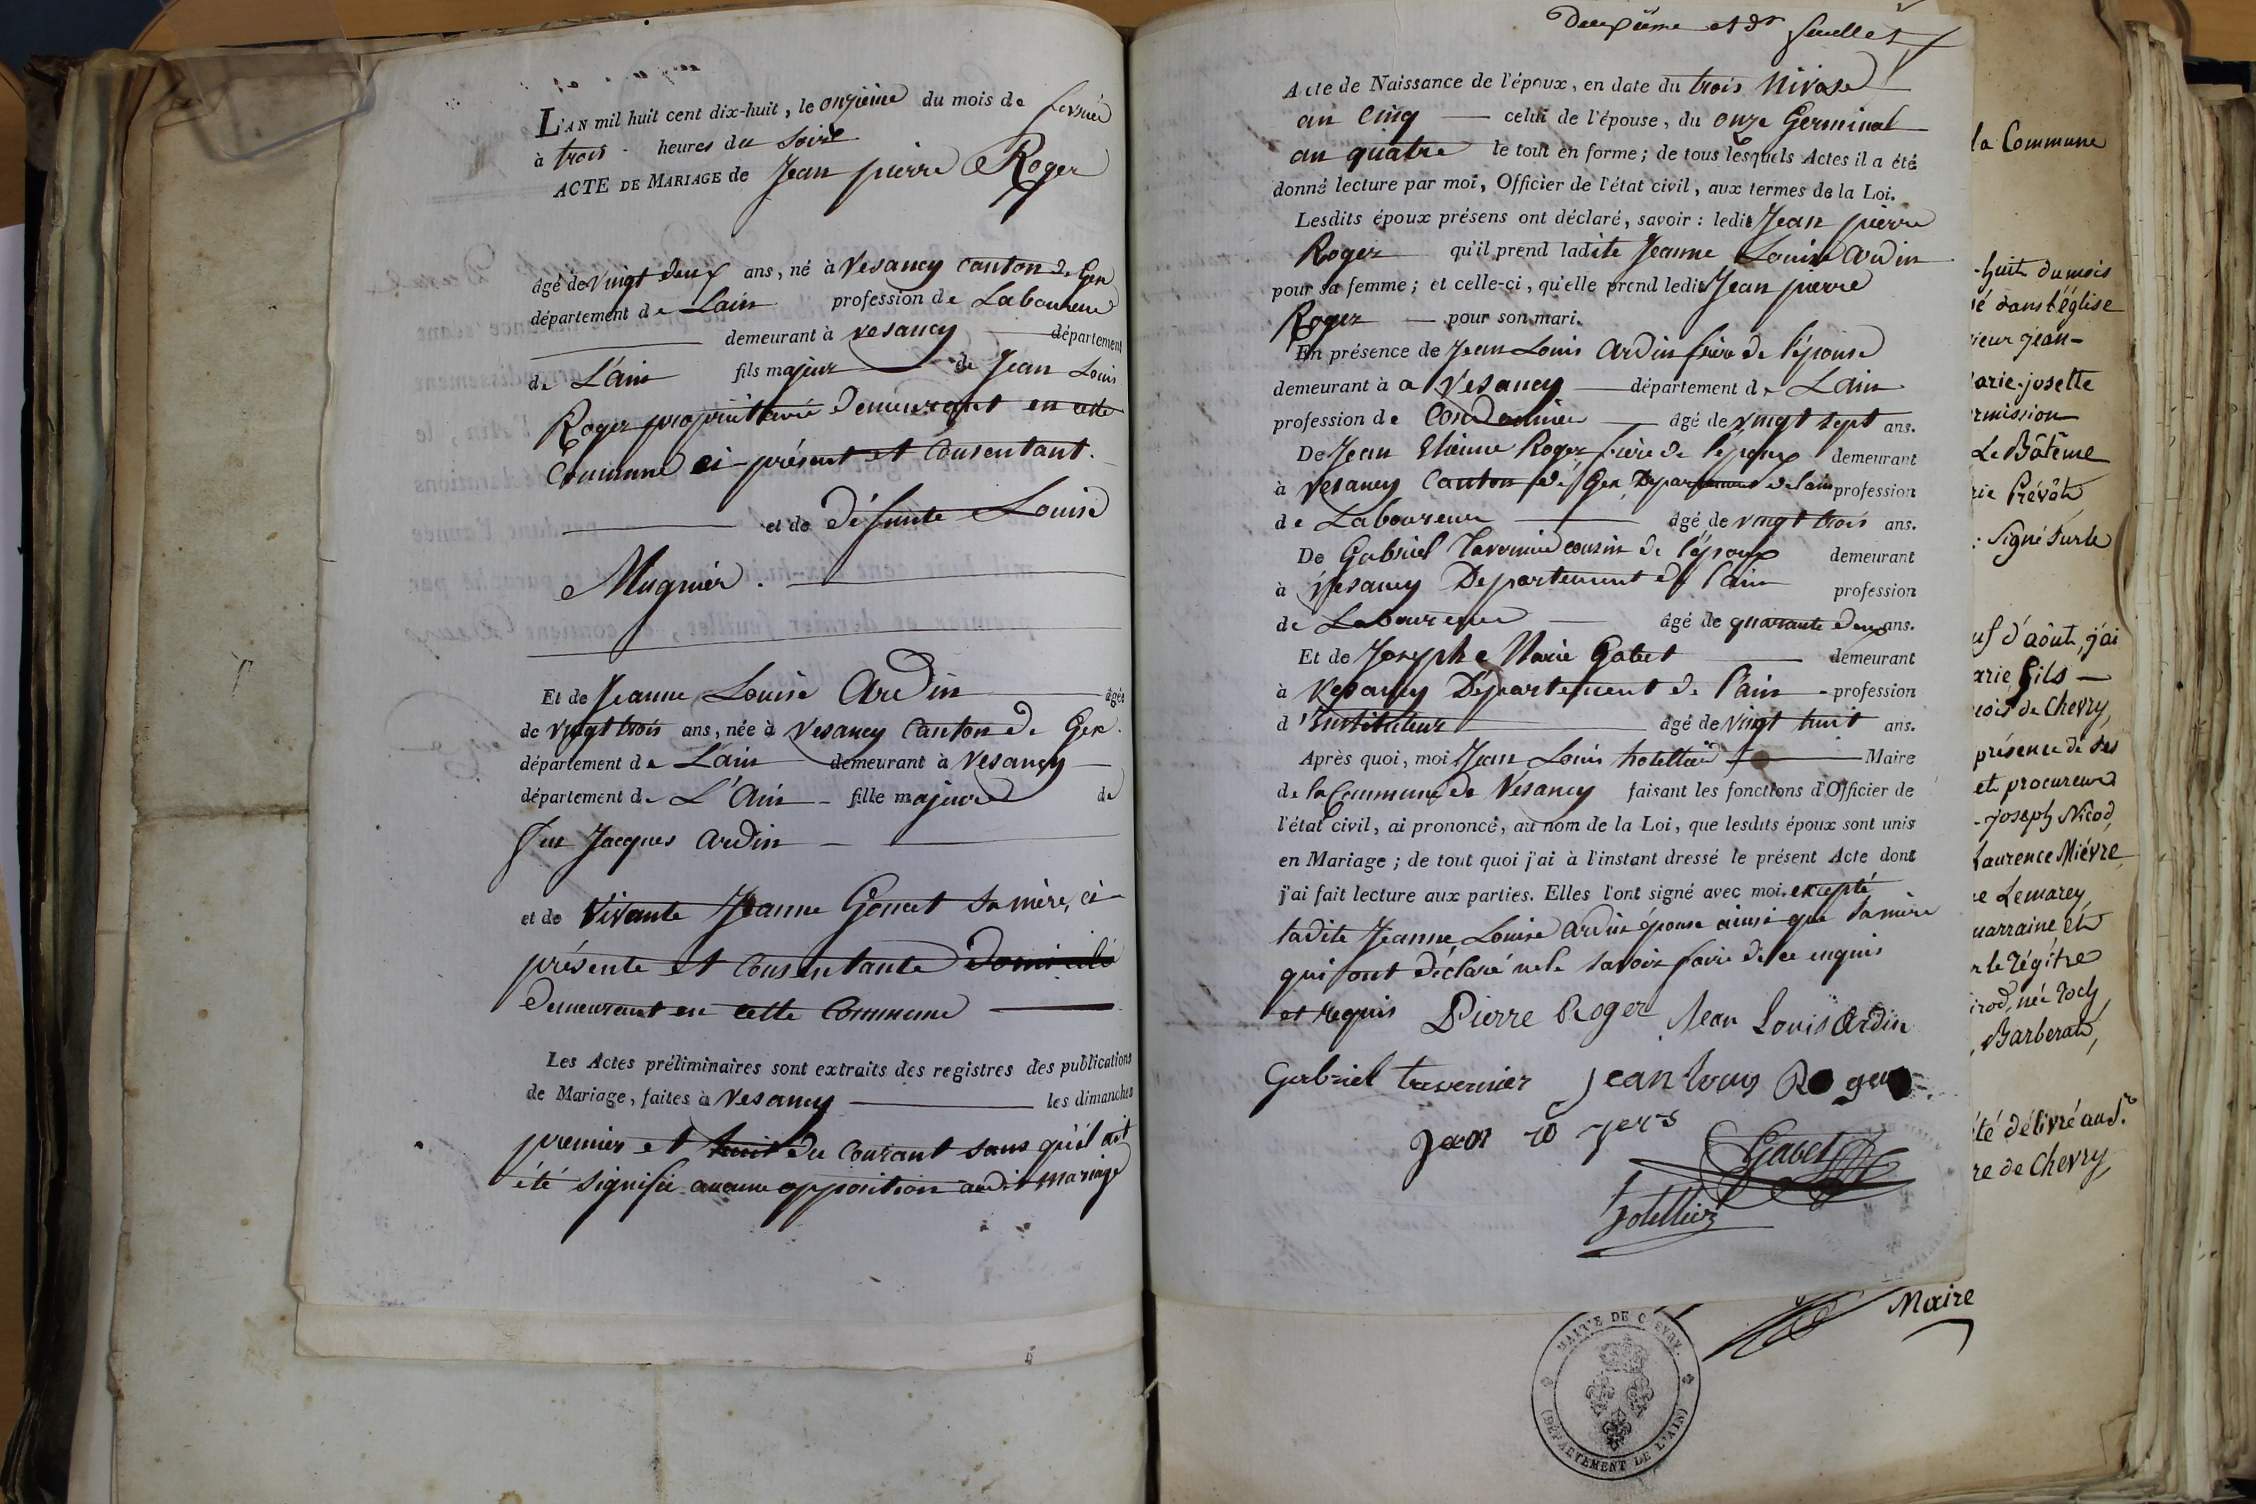 L'AN mil huit cent dix-huit, le onzième du mois de fevrier
à trois heures du Soir
ACTE DE MARIAGE de Jean pierre Roger
âgé de vingt deux ans, né à Vesancy canton de Gex
département de Lain profession de Laboureur
demeurant à vesancy département
de L'ain fils majeur de Jean Louis
Roger propriétaire demeurant en cette
Commune ci-présent et Consentant.
et de défunte Louise
Mugnier.
Et de Jeanne Louise Ardin âgée
de vingt trois ans, née à Vesancy Canton de Gex.
département de Lain demeurant à Vesancy
département de L'Ain fille majeure de
feu Jacques Ardin
et de Vivante Jeanne Gonet sa mère, ci-
présente et Consentante
demeurant en cette Commune
Les Actes préliminaires sont extraits des registres des publications
de Mariage, faites à Vesancy les dimanches
premier et huit du Courant sans qu'il ait
été signifié aucune opposition audit mariage
Deuxième et dr feuillet
Acte de Naissance de l'époux, en date du trois Nivose
an Cinq celui de l'épouse, du onze Germinal
an quatre le tout en forme; de tous lesquels Actes il a été
donné lecture par moi, Officier de l'état civil, aux termes de la Loi.
Lesdits époux présens ont déclaré, savoir: ledit Jean pierre
Roger qu'il prend ladite Jeanne Louise Ardin
pour sa femme; et celle-ci, qu'elle prend ledit Jean pierre
Roger pour son mari.
En présence de Jean Louis Ardin frère de l'épouse
demeurant à a Vesancy département de Lain
profession de Cordonnier âgé de vingt sept ans.
De Jean Etienne Roger frère de l'époux demeurant
à Vesancy Canton de Gex, Département de Lain profession
de Laboureur âgé de vingt trois ans.
De Gabriel Tavernier cousin de l'époux demeurant
à Vesancy Département de l'ain profession
de Laboureur âgé de quarante deux ans.
Et de Joseph Marie Gabet demeurant
à Vesancy Département de l'ain profession
d'Instituteur âgé de Vingt huit ans.
Après quoi, moi Jean Louis hotellier Maire
de la Commune de Vesancy faisant les fonctions d'Officier de
l'état civil, ai prononcé, au nom de la Loi, que lesdits époux sont unis
en Mariage; de tout quoi j'ai à l'instant dressé le présent Acte dont
j'ai fait lecture aux parties. Elles l'ont signé avec moi. excepté
ladite Jeanne Louise Ardin épouse ainsi que sa mère
qui ont déclaré ne le savoir faire de ce enquis
et requis Pierre Roger Jean Louis Ardin
Gabriel tavernier Jean Louis Roger
Jean
Gabet
hotellier
la Commune
-huit du mois
dans l'église
jean-
arie-josette
rmission
Le Bâtême
rie Prévôt
: Signé Sur le
d'août, j'ai
arie fils
de Chevry,
présence de ses
et procureur
-joseph Nicod,
Laurence Mièvre
Lemarey
marraine et
le régitre
née Roch,
Barberat,
été délivré aud. Sr
re de Chevry,
Maire
MAIRIE DE CHEVRY.
(DÉPARTEMENT DE L'AIN)